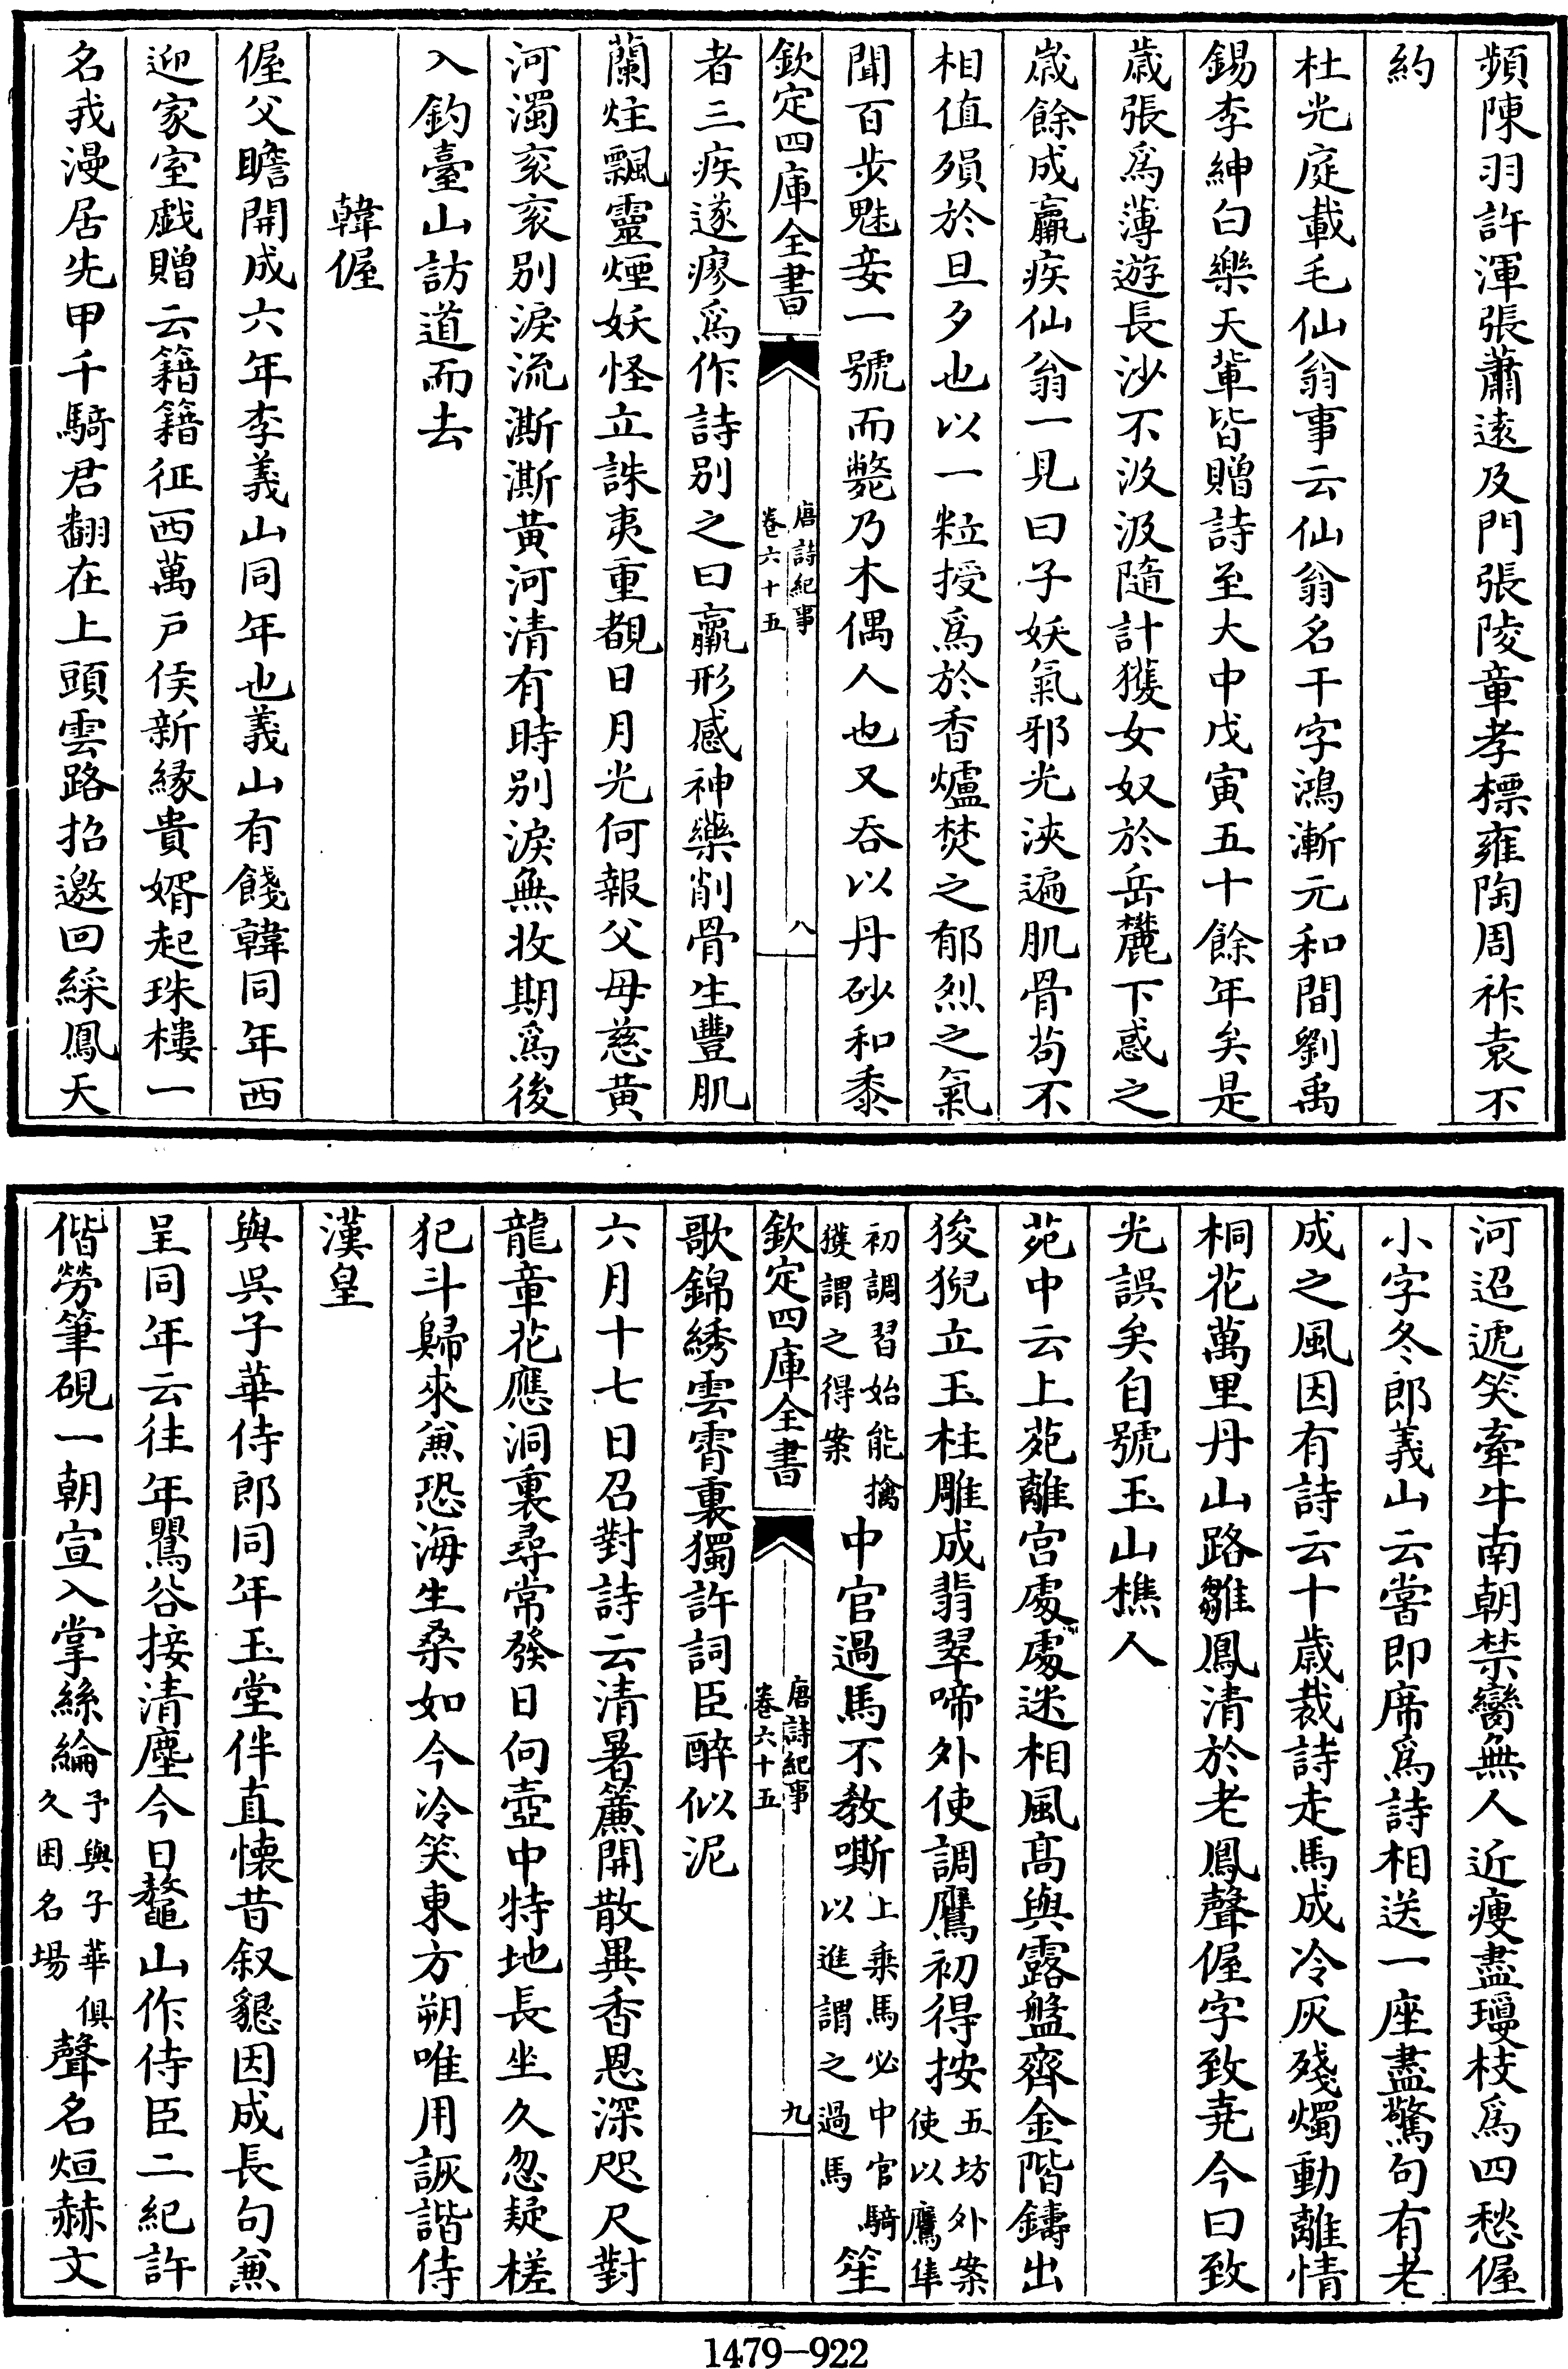 頻陳羽許渾張蕭遠及門張陵章孝標雍陶周祚袁不
約
杜光庭載毛仙翁事云仙翁名干字鴻漸元和間劉禹
錫李紳白樂天輩皆贈詩至大中戊寅五十餘年矣是
歲張爲薄遊長沙不汲汲隨計獲女奴於岳麓下惑之
歲餘成羸疾仙翁一見曰子妖氣邪光浹遍肌骨茍不
相值殞於旦夕也以一粒授爲於香爐焚之郁烈之氣
聞百步魅妾一號而斃乃木偶人也又吞以丹砂和黍
欽定四庫全書
唐詩紀事
卷六十五
八
者三疾遂瘳爲作詩别之曰羸形感神藥削骨生豐肌
蘭炷飄靈煙妖怪立誅夷重覩日月光何報父母慈黄
河濁衮衮别淚流澌澌黄河清有時别淚無收期爲後
入釣臺山訪道而去
韓偓
偓父瞻開成六年李義山同年也義山有餞韓同年西
迎家室戯贈云籍籍征西萬戸侯新縁貴婿起珠樓一
名我漫居先甲千騎君翻在上頭雲路招邀回綵鳳天
河迢遞笑牽牛南朝禁臠無人近瘦盡瓊枝爲四愁偓
小字冬郎義山云嘗即席爲詩相送一座盡驚句有老
成之風因有詩云十歲裁詩走馬成冷灰殘燭動離情
桐花萬里丹山路雛鳳清於老鳳聲偓字致堯今曰致
光誤矣自號玉山樵人
苑中云上苑離宫處處迷相風髙與露盤齊金階鑄出
狻猊立玉柱雕成翡翠啼外使調鷹初得按五坊外案使以鷹隼
初調習始能擒獲謂之得案中官過馬不教嘶上乗馬必中官騎以進謂之過馬笙
欽定四庫全書
唐詩紀事
卷六十五
九
歌錦綉雲霄裏獨許詞臣醉似泥
六月十七日召對詩云清暑簾開散異香恩深咫尺對
龍章花應洞裏尋常發日向壺中特地長坐久忽疑槎
犯斗歸來兼恐海生桑如今冷笑東方朔唯用詼諧侍
漢皇
與吳子華侍郎同年玉堂伴直懐昔叙懇因成長句兼
呈同年云往年鸎谷接清塵今日鼇山作侍臣二紀許
偕勞筆硯一朝宣入掌絲綸予與子華俱久困名場聲名烜赫文
1479-922